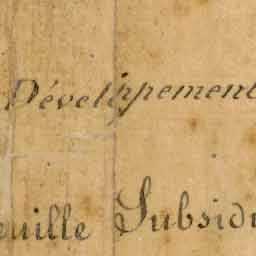 Dévelippement
euille Subsidi